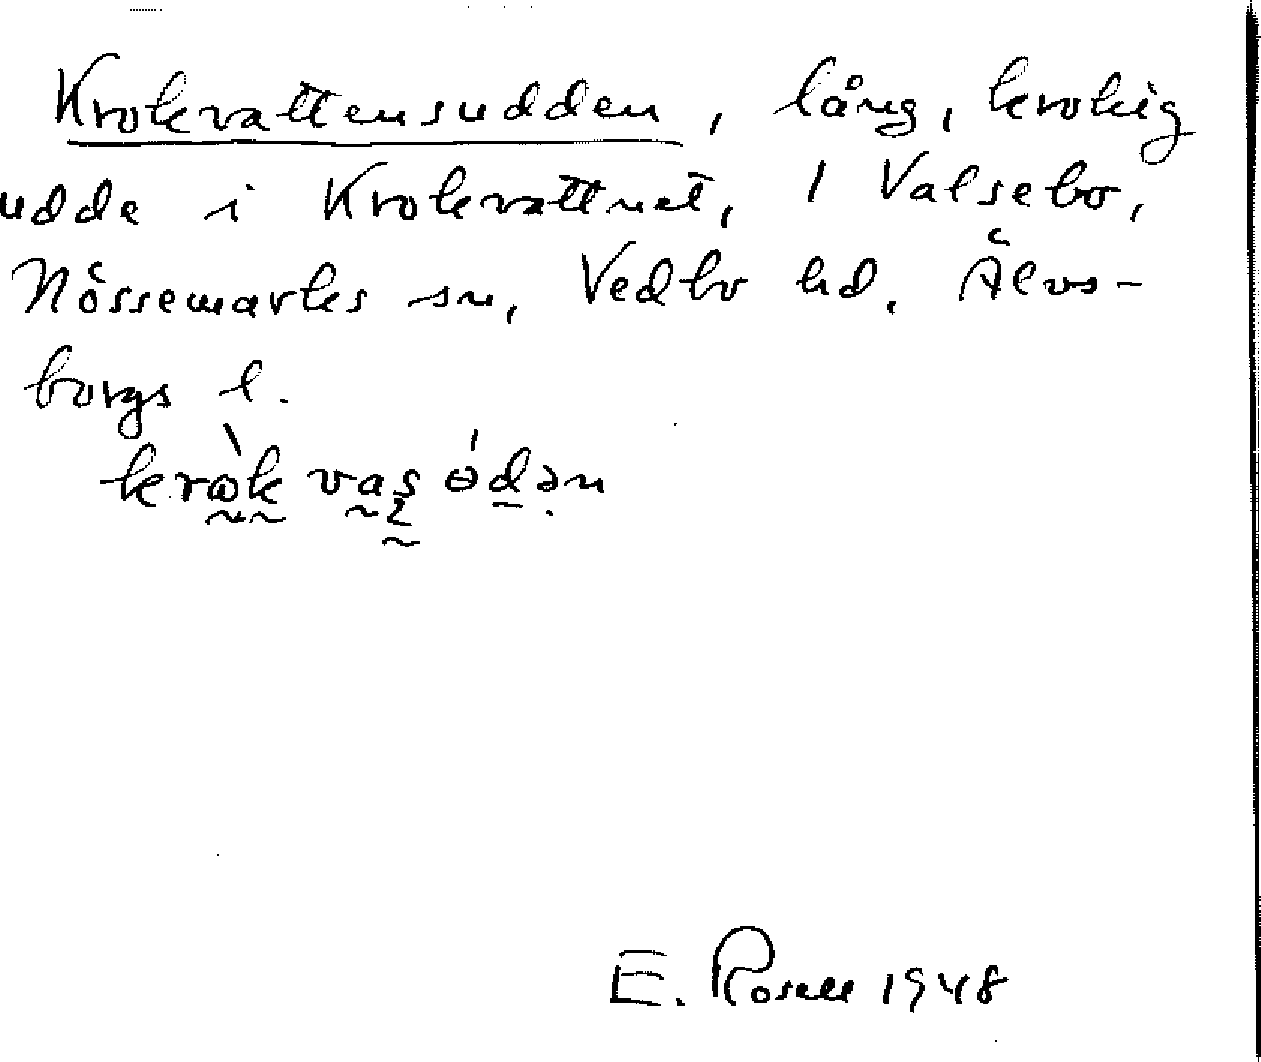 Krokvattensudden, lång, krokig
udde i Krokvattnet, 1 Valsebo,
Nössemarks sn, Vedbo hd. Älvs-
borgs l.
E. Rosell 1948